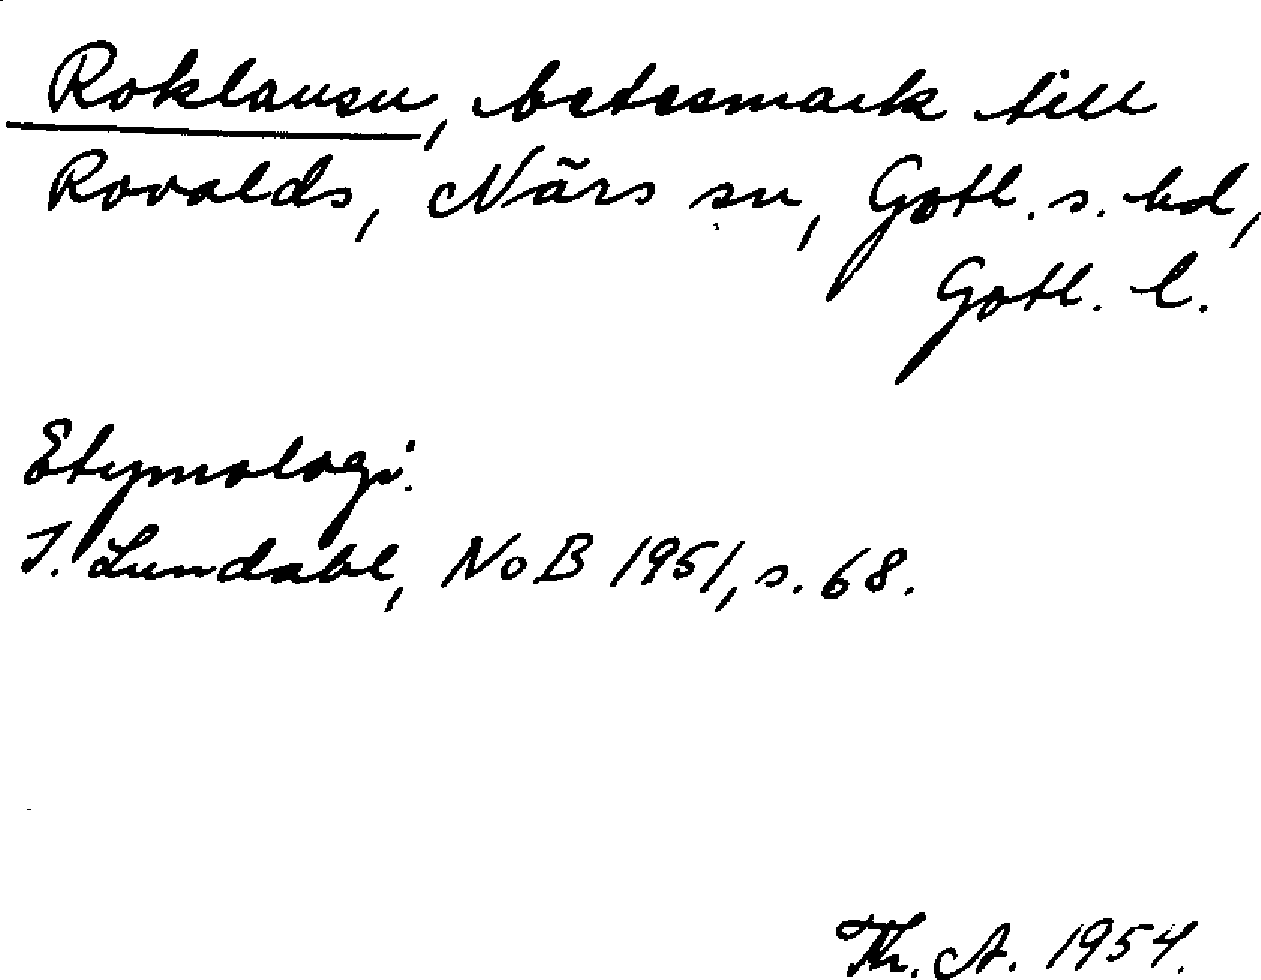 Roklausu, betesmark till
Rovalds, Närs sn, Gotl. s. hd,
Gotl. l.
Etymologi.
I. Lundahl, NoB 1951, s. 68.
Th. A. 1954.